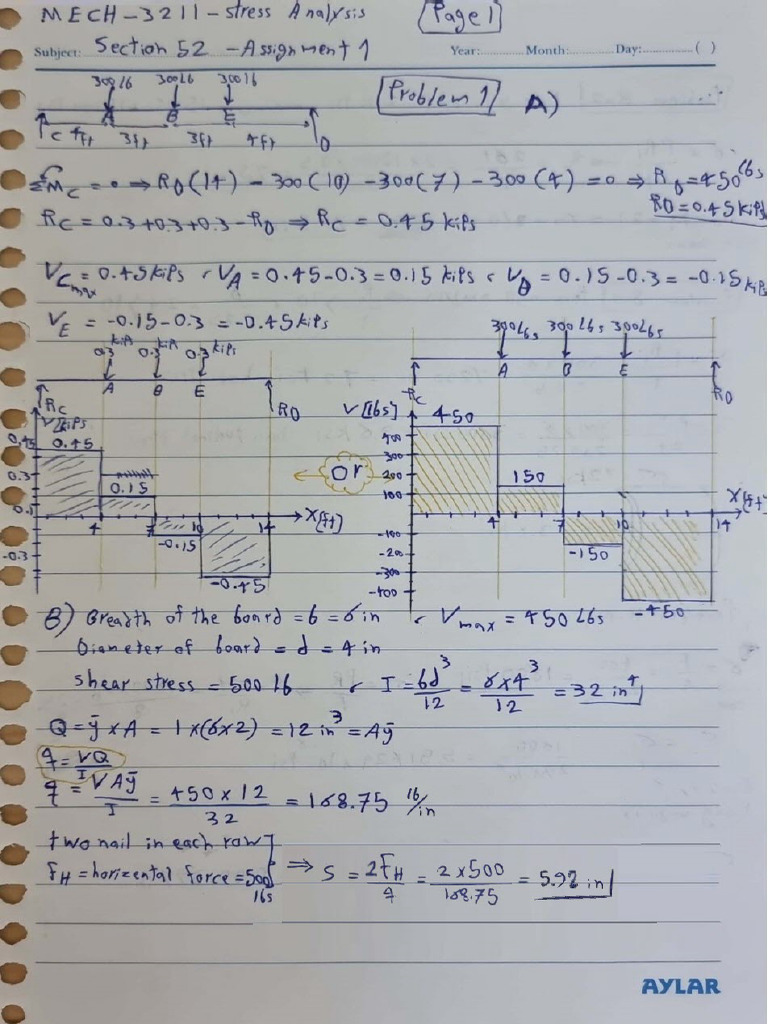 MECH-3211-Stress Analysis [Page 1]
Subject: Section 52 - Assignment 1 Year: Month: Day: ( )
300lb 300lb 300lb
[Problem 1] A)
A B E
C 4ft 3ft 3ft 4ft D
ΣM_C = 0 ⇒ R_D(14) - 300(10) - 300(7) - 300(4) = 0 ⇒ R_D = 450 lbs
R_D = 0.45 kips
R_C = 0.3+0.3+0.3-R_D ⇒ R_C = 0.45 kips
V_C max = 0.45 kips , V_A = 0.45-0.3 = 0.15 kips , V_B = 0.15-0.3 = -0.15 kips
V_E = -0.15-0.3 = -0.45 kips
0.3 kips 0.3 kips 0.3 kips
A B E
R_C R_D
V[kips]
0.45 0.45
0.3
0.15
0.1
4 7 10 14 X[ft]
-0.15
-0.3
-0.45
or
300Lbs 300Lbs 300Lbs
A B E
R_C R_D
V[lbs] 450
400
300
200 150
100
4 7 10 14 X[ft]
-100
-150
-200
-300
-400
-450
B) Breadth of the board = b = 6 in , V_max = 450 Lbs
Diameter of board = d = 4 in
shear stress = 500 lb , I = bd³/12 = 6×4³/12 = 32 in⁴
Q = ȳ × A = 1×(6×2) = 12 in³ = Aȳ
q = VQ/I
q = VAȳ/I = 450×12/32 = 168.75 lb/in
two nail in each raw
F_H = horizental force = 500 lbs ⇒ S = 2F_H/q = 2×500/168.75 = 5.92 in
AYLAR